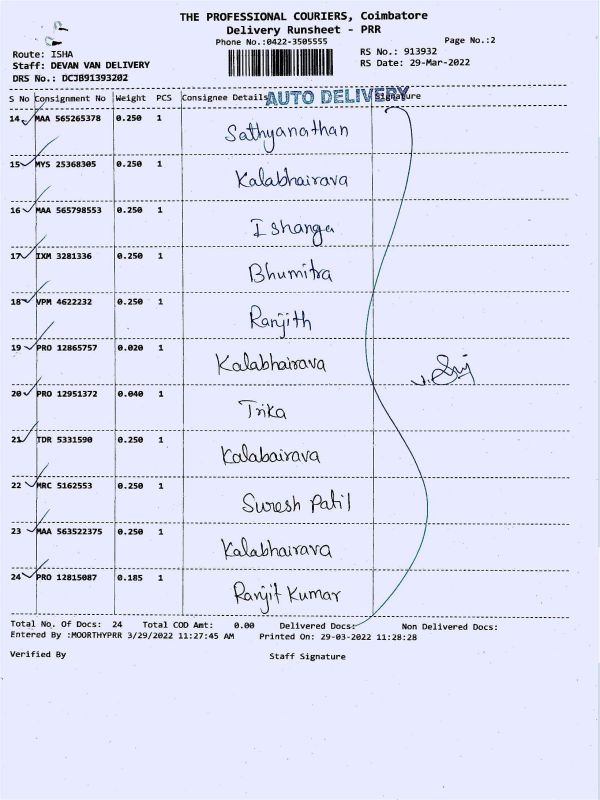 THE PROFESSIONAL COURIERS, Coimbatore
Delivery Runsheet - PRR
Phone No.:0422-3505555
Page No.:2
Route: ISHA
RS No.: 913932
Staff: DEVAN VAN DELIVERY
RS Date: 29-Mar-2022
DRS No.: DCJB91393202
S No Consignment No Weight PCS Consignee Details AUTO DELIVERY Signature
14 MAA 565265378 0.250 1 Sathyanathan
15 MYS 25368305 0.250 1 Kalabhairava
16 MAA 565798553 0.250 1 Ishanga
17 IXM 3281336 0.250 1 Bhumitra
18 VPM 4622232 0.250 1 Ranjith
19 PRO 12865757 0.020 1 Kalabhairava
20 PRO 12951372 0.040 1 Trika
21 TDR 5331590 0.250 1 Kalabairava
22 MRC 5162553 0.250 1 Suresh Patil
23 MAA 563522375 0.250 1 Kalabhairava
24 PRO 12815087 0.185 1 Ranjit Kumar
Total No. Of Docs: 24 Total COD Amt: 0.00 Delivered Docs: Non Delivered Docs:
Entered By :MOORTHYPRR 3/29/2022 11:27:45 AM Printed On: 29-03-2022 11:28:28
Verified By Staff Signature